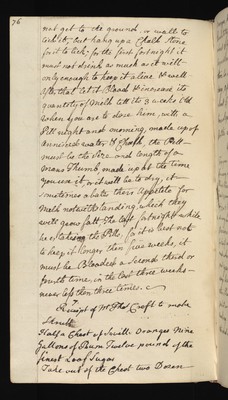 76
not get to the ground or wall to
lick it; but hang up a Chalk stone
for it to lick; for the first fortnight it
must not drink as much as it will
only enough to keep it alive & well
after that let it Blood & increase its
quantity of Milk till its 3 weeks old
when you are to dose them, with a
Pill night and morning, made up of
Anniseed water & Chalk, the Pill
must be the size and length of a
Mans Thumb, made up at the time
you use it, or it will be to dry, it
sometimes abates their Appetite for
Milk notwithstanding which they
will grow fatt. The last fortnight while
be taking the Pill, for it is best not
to keep it longer than five weeks, it
must be Blooded a Second third or
fourth time, in the last three weeks
never less than three times.
Receipt of Mr Thos Croft to make
Shrub
Half a Chest of Sevill Oranges Nine
Gallons of Rum Twelve pound of the
finest Loaf Sugar
Take out of the Chest two Dozen